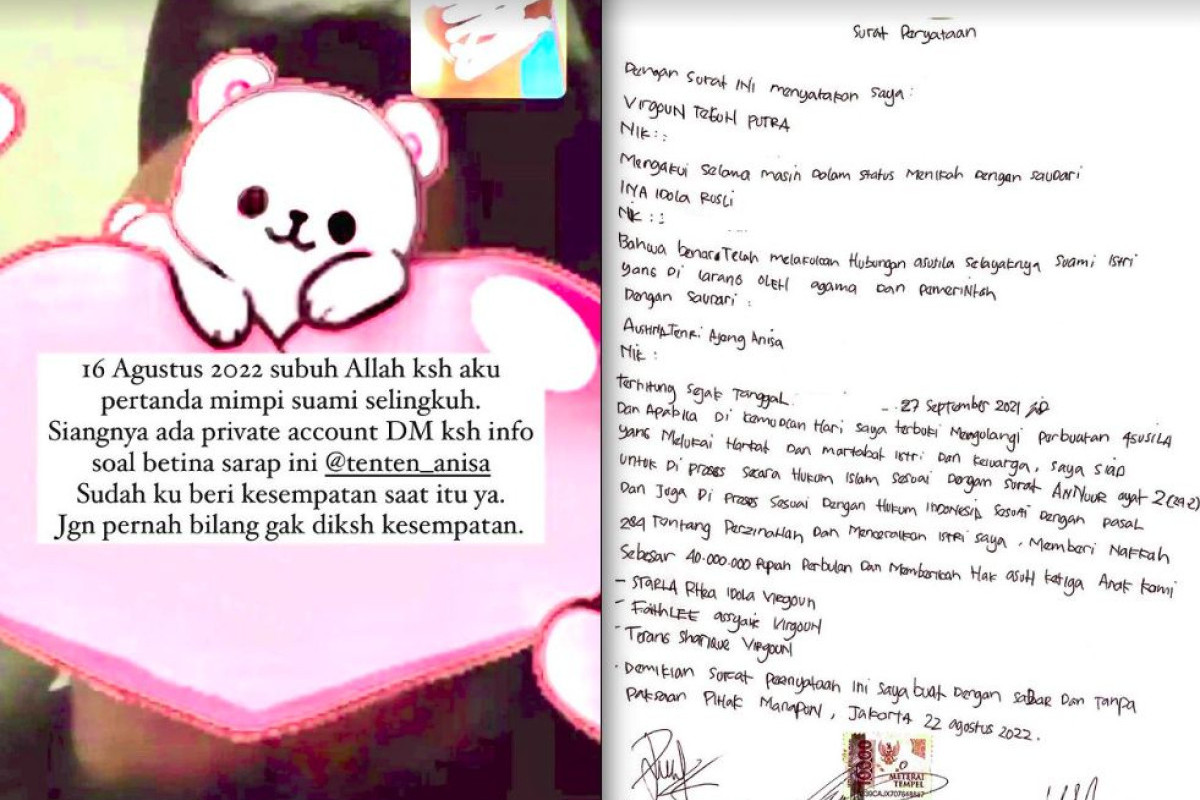 16 Agustus 2022 subuh Allah ksh aku
pertanda mimpi suami selingkuh.
Siangnya ada private account DM ksh info
soal betina sarap ini @tenten_anisa
Sudah ku beri kesempatan saat itu ya.
Jgn pernah bilang gak diksh kesempatan.
Surat Peryataan
Dengan surat ini menyatakan saya :
VIRGOUN TEGUH PUTRA
Nik : :
Mengakui selama masih dalam status menikah dengan saudari
INA IDOLA RUSLI
Nik : :
Bahwa benar Telah melakukan Hubungan asusila selayaknya suami istri
yang di larang oleh agama dan pemerintah
Dengan saudari :
Tenri Ajeng Anisa
Nik :
Terhitung sejak Tanggal 27 September 2021
Dan Apabila Di kemudian Hari saya terbukti Mengulangi perbuatan Asusila
yang Melukai Harkat Dan martabat istri Dan keluarga, saya siap
untuk Di proses secara Hukum Islam sesuai Dengan surat ANNUUR ayat 2
Dan Juga Di proses sesuai Dengan Hukum INDONESIA sesuai Dengan pasal
284 Tentang Perzinahan Dan Menceraikan istri saya, Memberi Nafkah
Sebesar 40.000.000 Rupiah Perbulan Dan Memberikan Hak asuh ketiga Anak kami
- STARLA RHEA IDOLA VIRGOUN
- FaithLEE assyaik Virgoun
- Terans Sharique Virgoun
Demikian surat pernyataan ini saya buat Dengan sadar Dan Tanpa
paksaan Pihak Manapun, Jakarta 22 agustus 2022.
10000
METERAI
TEMPEL